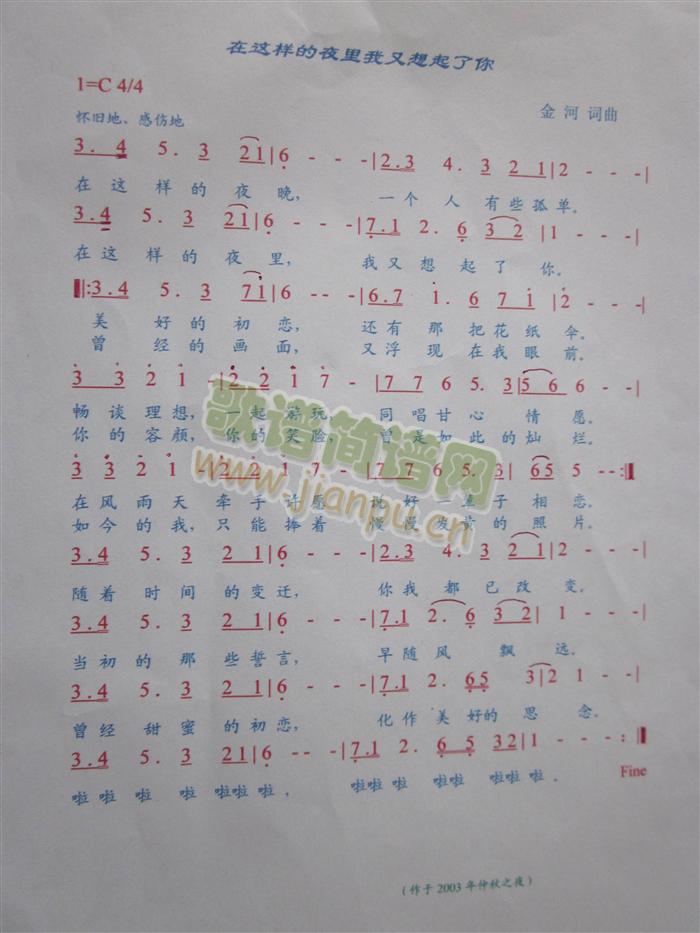 在这样的夜里我又想起了你
1=C 4/4
金河 词曲
怀旧地、感伤地
3.4 5.3 21|6 - - -|2.3 4.3 21|2 - - -|
在这样的夜晚, 一个人有些孤单。
3.4 5.3 21|6 - - -|7.1 2.6 32|1 - - -|
在这样的夜里, 我又想起了你。
‖:3.4 5.3 71|6 - - -|6.7 1.6 71|2 - - -|
美好的初恋, 还有那把花纸伞。
曾经的画面, 又浮现在我眼前。
3 3 2 1 -|2 2 1 7 -|7 7 6 5.3|5 6 6 - -|
畅谈理想, 一起游玩, 同唱甘心情愿。
你的容颜, 你的笑脸, 曾是如此的灿烂。
3 3 2 1 - 2 2 1 7 -|7 7 6 5.3|65 5 - -:‖
在风雨天牵手许愿 说好一辈子相恋。
如今的我, 只能捧着 慢慢发黄的照片。
3.4 5.3 21|6 - - -|2.3 4.3 21|2 - - -|
随着时间的变迁, 你我都已改变。
3.4 5.3 21|6 - - -|7.1 2.6 32|1 - - -|
当初的那些誓言, 早随风飘远。
3.4 5.3 21|6 - - -|7.1 2.65 3|2 1 - - -|
曾经甜蜜的初恋, 化作美好的思念。
3.4 5.3 21|6 - - -|7.1 2.65 32|1 - - -:‖
啦啦啦啦啦啦啦, 啦啦啦啦啦啦啦啦。
Fine
(作于2003年仲秋之夜)
歌谱简谱网
www.jianpu.cn